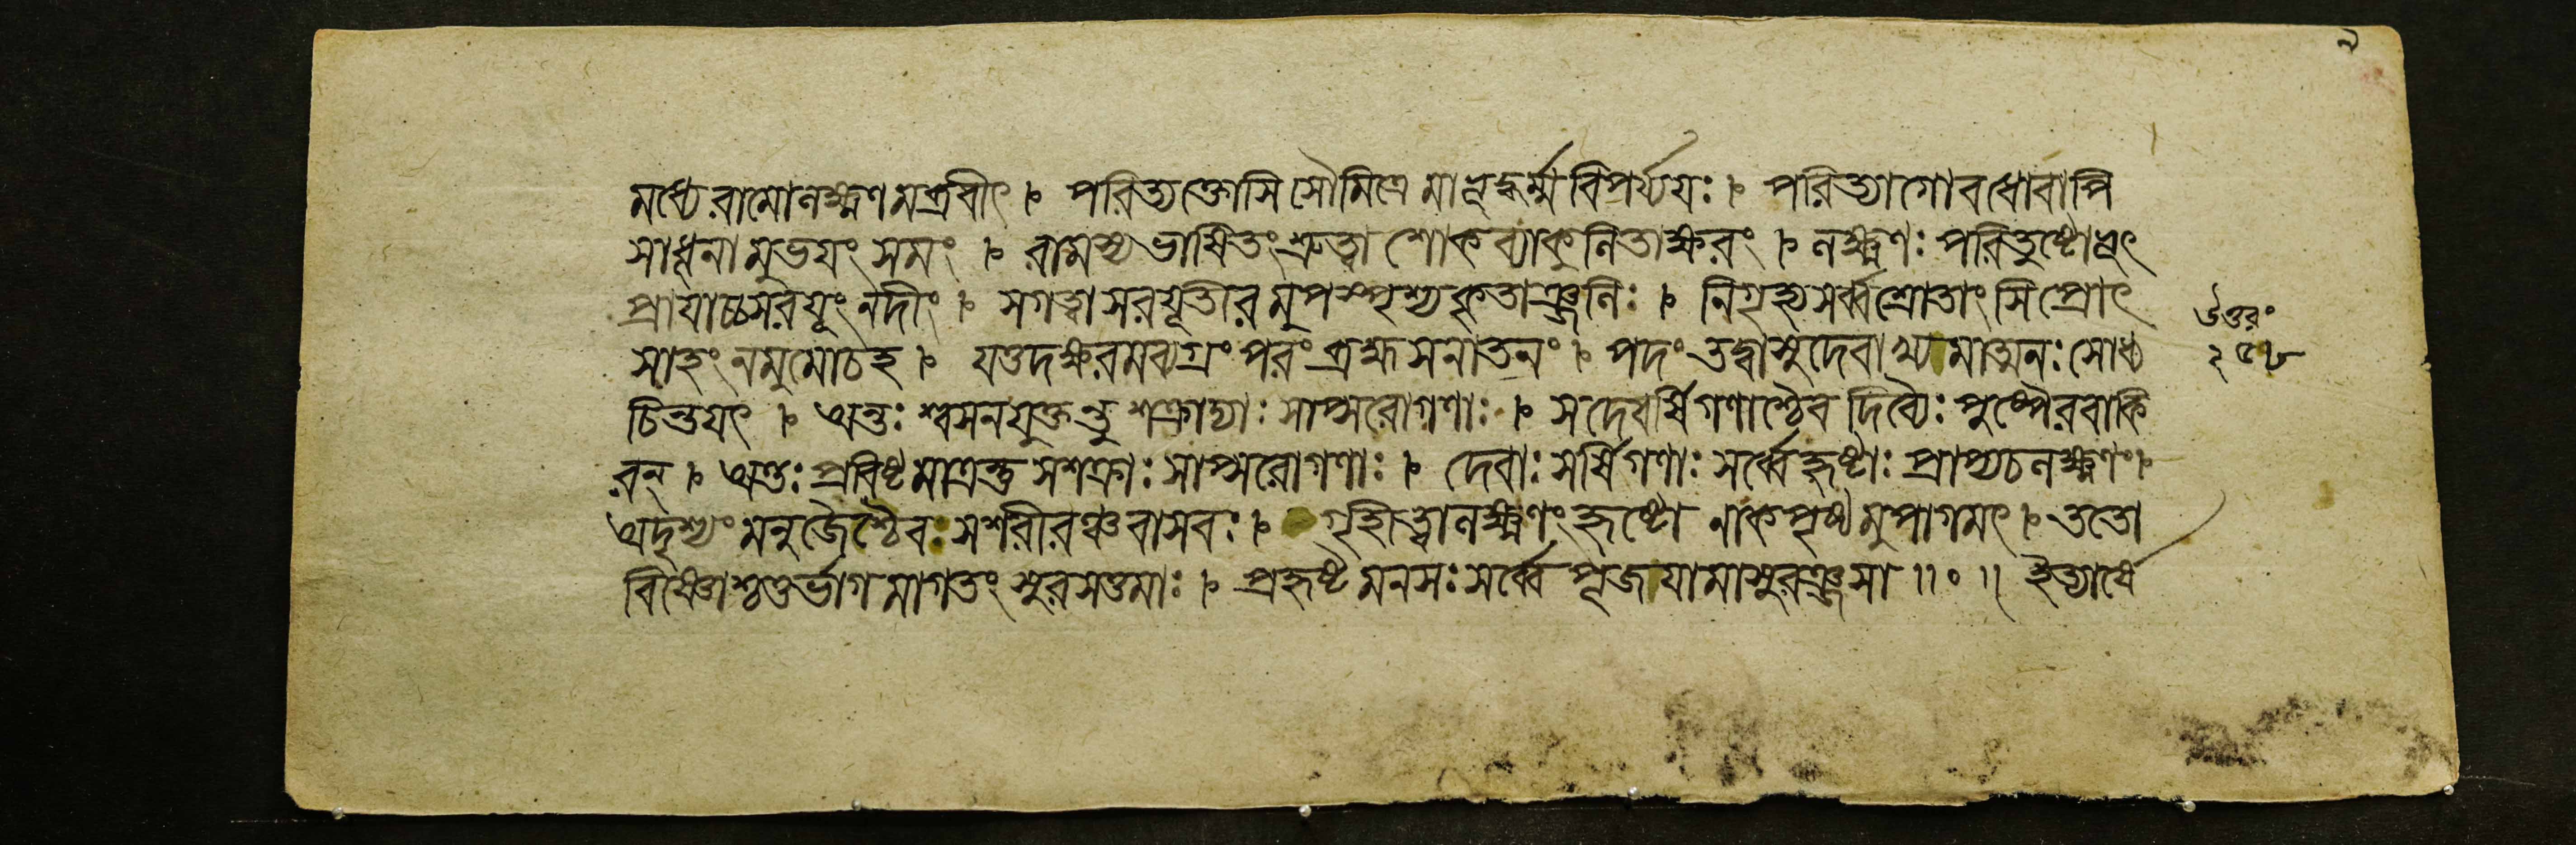 মধ্যে রামোলক্ষ্মণমব্রবীৎ । পরিত্যক্তোসি সৌমিত্রে মাভূদ্ধর্ম্মবিপর্য্যয়ঃ । পরিত্যাগোবধোবাপি
সাধূনামুভয়ং সমং । রামস্যভাষিতংশ্রুত্বা শোকব্যাকুলিতাক্ষরং । লক্ষ্মণঃ পরিতুষ্টোভূৎ
প্রায়াচ্চসরযূংনদীং । সগত্বাসরযূতীরমুপস্পৃশ্যকৃতাঞ্জলিঃ । নিগৃহ্যসর্ব্বশ্রোতাংসিপ্রোৎ
সাহংনমুমোচহ । যত্তদক্ষরমব্যগ্রং পরং ব্রহ্মসনাতনং । পদং তদ্বাসুদেবাখ্যমাত্মনঃসোভ্য
চিন্তয়ৎ । অন্তঃশ্বসনযুক্তন্তু শক্রাদ্যাঃ সাপ্সরোগণাঃ । সদেবর্ষিগণাশ্চৈব দিব্যৈঃ পুষ্পৈরবাকি
রন্ । অন্তঃপ্রবিষ্টমাত্রন্তু সশক্রাঃ সাপ্সরোগণাঃ । দেবাঃ সর্ষিগণাঃ সর্ব্বেহৃষ্টাঃ প্রাপ্যচলক্ষ্মণং ।
অদৃশ্যং মনুজৈশ্চৈব সশরীরঞ্চবাসবঃ । গৃহীত্বালক্ষ্মণং হৃষ্টো নাকপৃষ্ঠমুপাগমৎ । ততো
বিষ্ণোশ্চতুর্ভাগমাগতং সুরসত্তমাঃ । প্রহৃষ্টমনসঃ সর্ব্বে পূজয়ামাসুরঞ্জসা ॥০॥ ইত্যার্ষে
উত্তরং
২৫৮